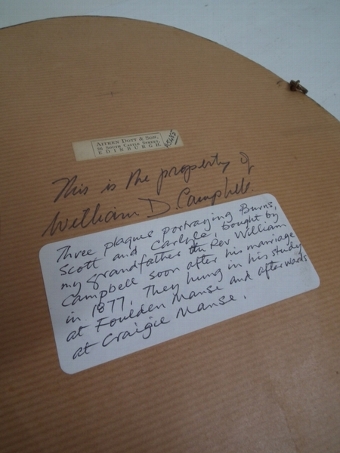 AITKEN DOTT & SON,
26 SOUTH CASTLE STREET,
EDINBURGH.
This is the property of
William D Campbell
Three plaques portraying Burns,
Scott and Carlyle, bought by
my grandfather the Rev William
Campbell soon after his marriage
in 1877. They hung in his study
at Foulden Manse and afterwards
at Craigie Manse.